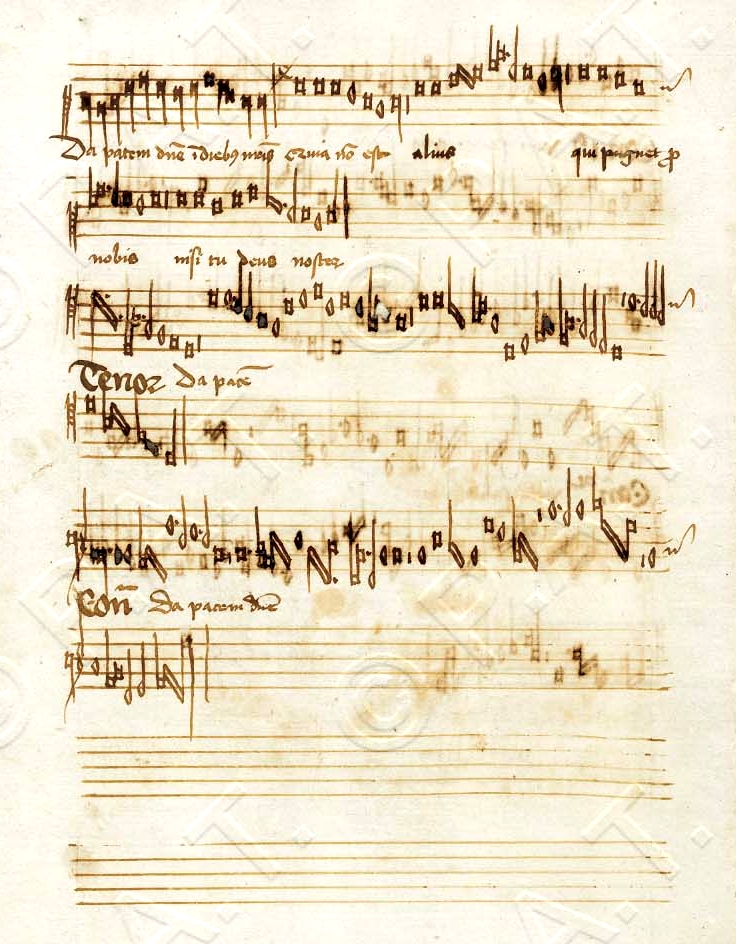 Da pacem dn̄e ī dieb9 nr̄is Quia nō est alius qui pugnet ꝓ
nobis nisi tu deus noster
Tenor Da pacē
Con̄ Da pacem dn̄e